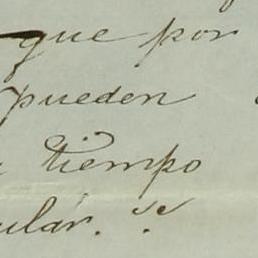 que por
pueden
tiempo
ular. se